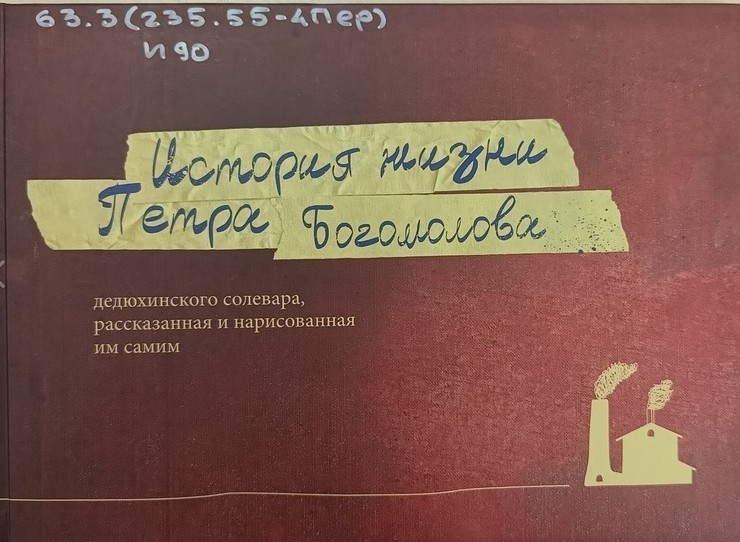 63.3(235.55-4Пер)
И90
История жизни
Петра Богомолова
дедюхинского солевара,
рассказанная и нарисованная
им самим